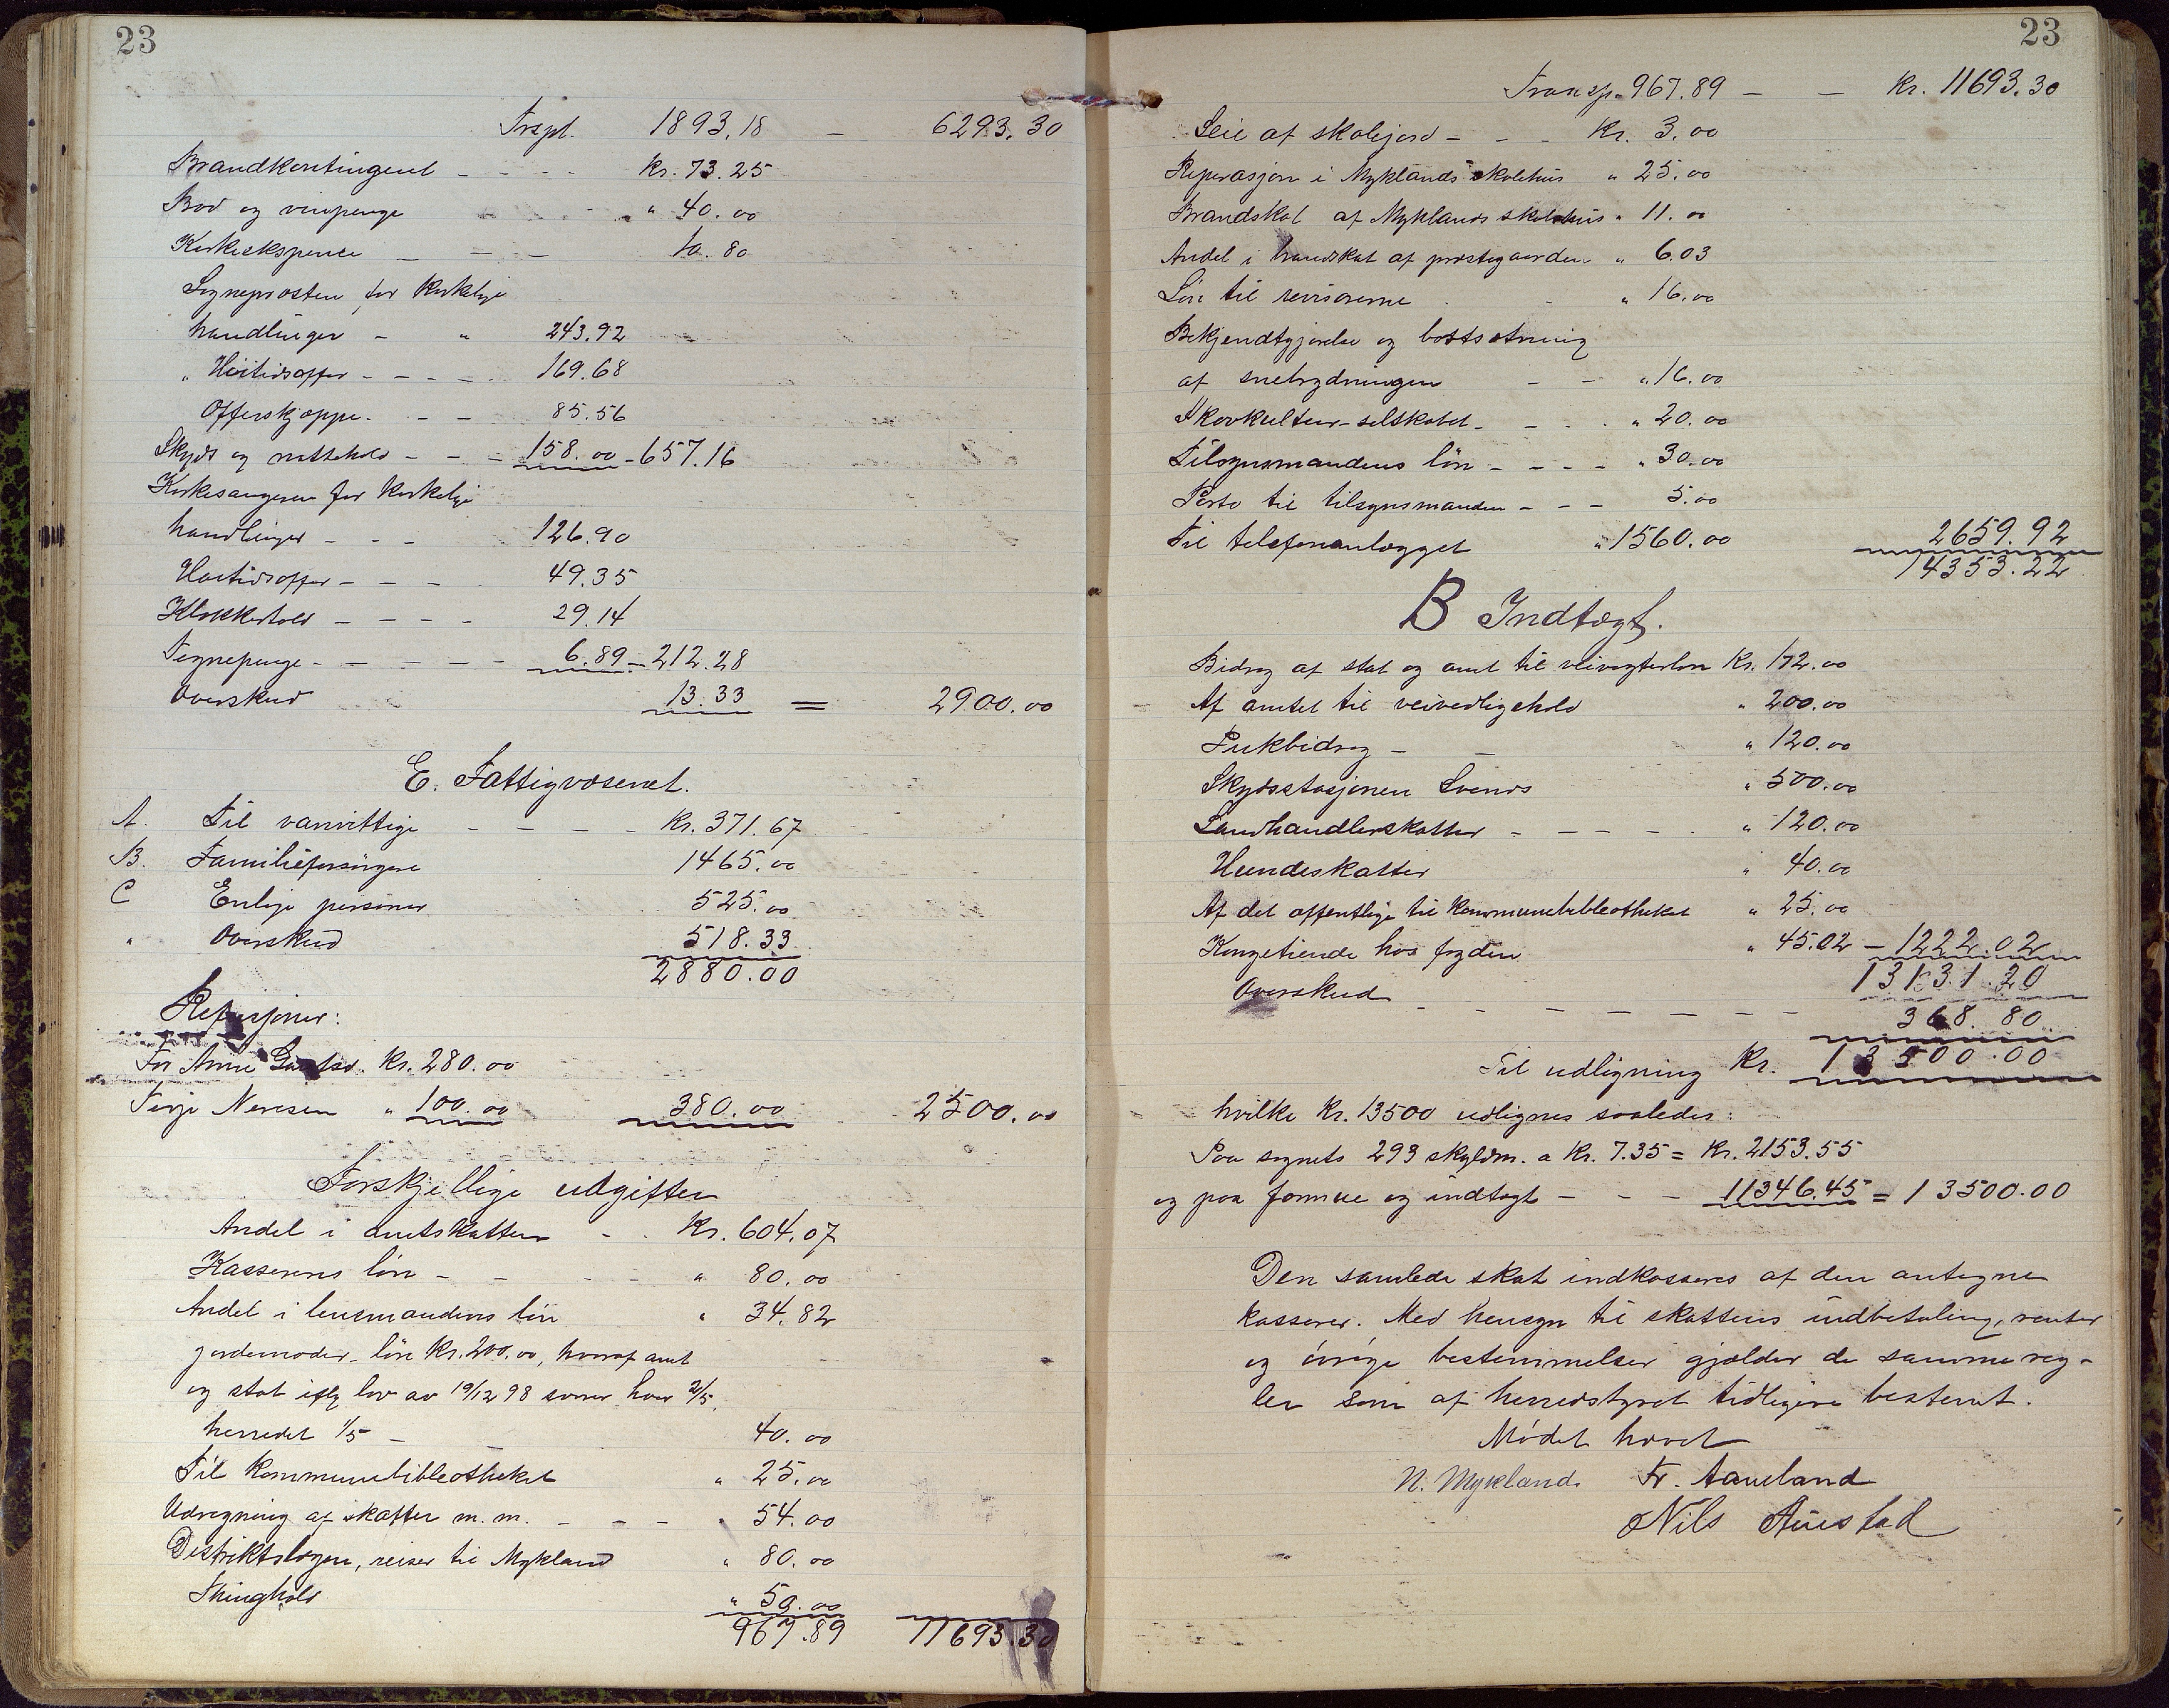 23
Trspt. 1893,18 – 6293.30
Brandkontingent – – – – Kr. 73.25
Brød og vinpenge – – – " 40.00
Kirkeekspence – – – 10.80
Sogneprosten for kirkelige
handlinger – " 243.92
" Høitidsoffer – – – – 169.68
Offerskjæppe – – – 85.56
Skyds og nattehold – – – 158.00 – 657.16
Kirkesangeren for kirkelige
handlinger – – – 126.90
Høitidsoffer – – – – 49.35
Klokkertold – – – – 29.14
Tegnepenge – – – – – 6.89 – 212.28
Overskud 13.33 = 2900.00
E. Fattigvæsenet.
A. Til vanvittige – – – – Kr. 371.67
B. Familieforsørgere 1465.00
C Enlige personer 525.00
" Overskud 518.33
2880.00
Refusjoner:
For Anne Kr. 280.00
Terje Nersen " 100.00 380.00 2500.00
Forskjellige udgifter
Andel i amtskatten – . Kr. 604,07
Kasserens løn – – – – " 80.00
Andel i lensmandens løn " 34.82
jordemoder-løn Kr. 200.00, hvoraf amt
og stat iflg lov av 19/12 98 svarer hver 2/5,
herredet 1/5 – 40.00
Til kommunebibliotheket " 25.00
Udregning af skatter m.m. – – – " 54.00
Distriktslægen, reiser til Mykland " 80.00
Thinghold " 50.00
967.89 11693.30
23
Transp. 967.89 – – Kr. 11693.30
Leie af skolejord – – – Kr. 3.00
Reperasjon i Myklands skolehus " 25.00
Brandskat af Myklands skolehus " 11.00
Andel i brandskat af prestegaarden " 6.03
Løn til revisorerne – " 16.00
Bekjendtgjørelse og bortsætning
af snebrydningen – – " 16.00
Skovkultur-selskabet – – – . " 20.00
Tilsynsmandens løn – – – – " 30.00
Porto til tilsynsmanden – – – 5.00
Til telefonanlægget " 1560.00 2659.92
14353.22
B Indtægt.
Bidrag af stat og amt til veivogterløn Kr. 172.00
Af amtet til veivedligehold " 200.00
Pukbidrag – – " 120.00
Skydsstasjonen Svends " 500.00
Landhandlerskatter – – – – " 120.00
Hundeskatter " 40.00
Af det offentlige til kommunebibliotheket " 25.00
Kongetiende hos fogden " 45.02 – 1222.02
13131.20
Overskud – – – – – – – 368.80
Til udligning Kr. 13500.00
hvilke Kr. 13500 udlignes saaledes:
Paa sognets 293 skyldm. a Kr. 7.35 = Kr. 2153.55
og paa formue og indtægt – – – 11346.45 = 13500.00
Den samlede skat indkasseres af den antagne
kasserer. Med hensyn til skattens indbetaling, renter
og øvrige bestemmelser gjælder de samme reg-
ler som af herredstyret tidligere bestemt.
Mødet hævet
N. Mykland Fr. Aamland
Nils Austad